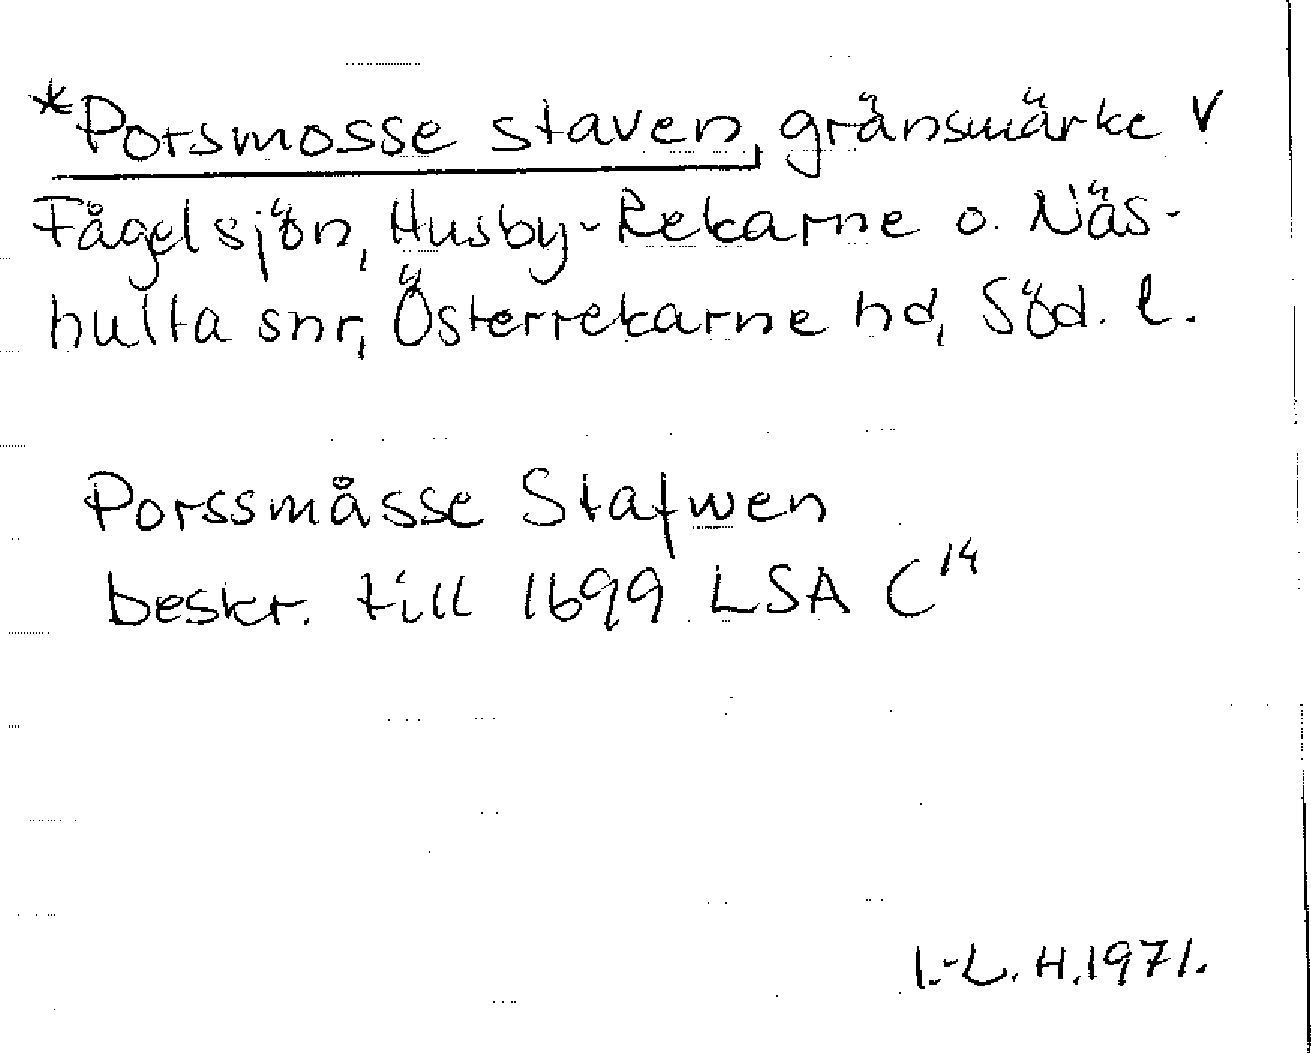 *Porsmosse staven, gränsmärke V
Fågelsjön, Husby-Rekarne o. Näs-
hulta snr, Österrekarne hd, Söd. l.
Porssmåsse Stafwen
beskr. till 1699 LSA C14
I.-L. H. 1971.